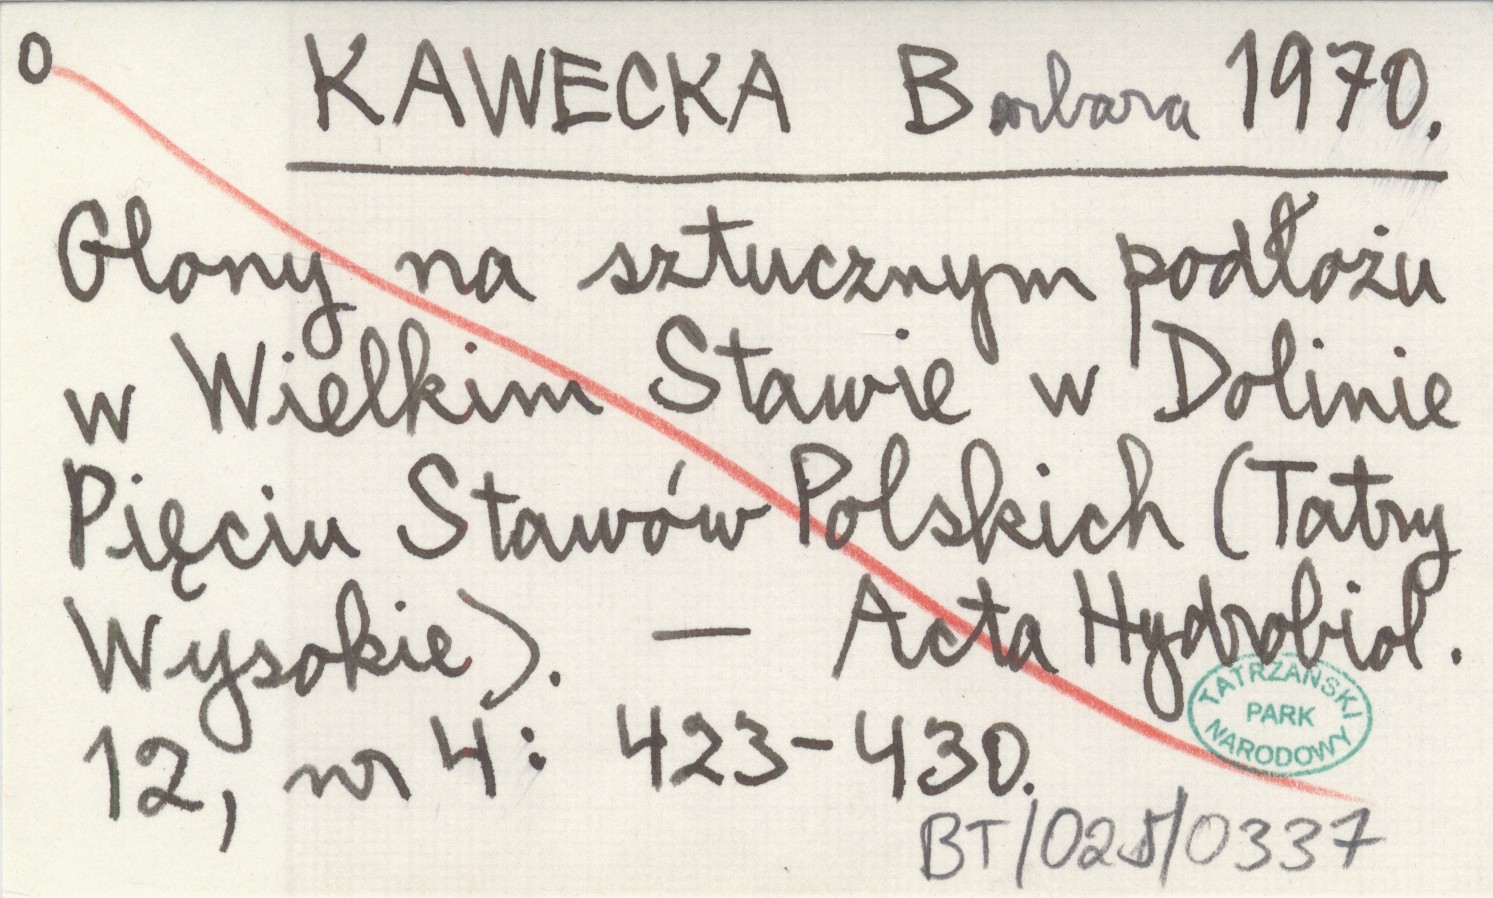 O KAWECKA Barbara 1970.
Glony na sztucznym podłożu
w Wielkim Stawie w Dolinie
Pięciu Stawów Polskich (Tatry
Wysokie). — Acta Hydrobiol.
12, nr 4: 423-430.
TATRZAŃSKI
PARK
NARODOWY
BT/025/0337